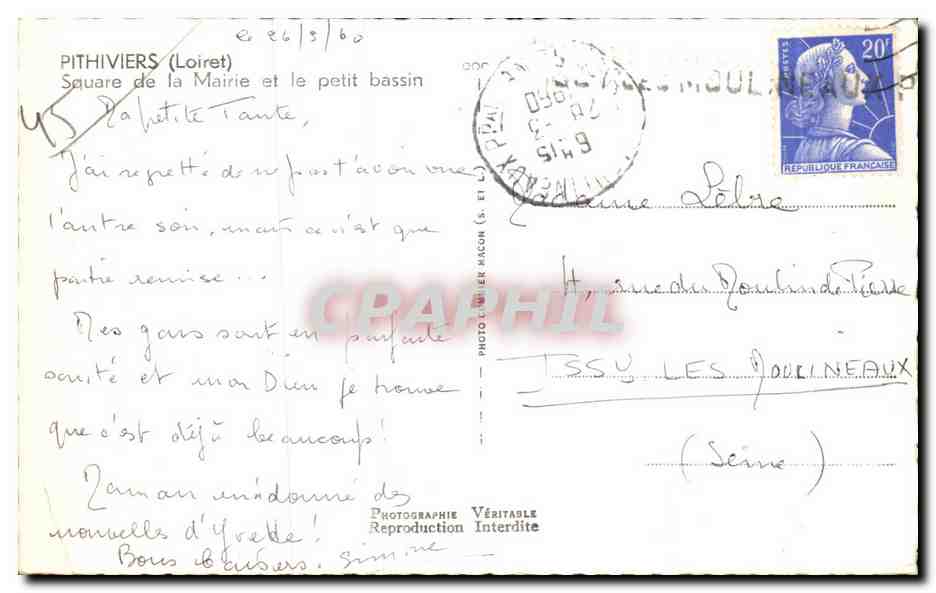 le 26/3/60
PITHIVIERS (Loiret)
Square de la Mairie et le petit bassin
45
Ma petite Tante,
J'ai regretté de ne pas t'avoir vue
l'autre soir, mais ce n'est que
partie remise...
Mes gars sont en parfaite
santé et mon Dieu je trouve
que c'est déjà beaucoup!
Maman m'a donné des
nouvelles d'Yvette!
Bons baisers. Simone
PHOTOGRAPHIE VÉRITABLE
Reproduction Interdite
PHOTO COMBIER MACON (S. ET L.)
6 H 15
1960
LES MOULINEAUX P
POSTES
20F
REPUBLIQUE FRANÇAISE
Madame Lèbre
4, rue du Moulin de Pierre
ISSY LES MOULINEAUX
(Seine)
CPAPHIL